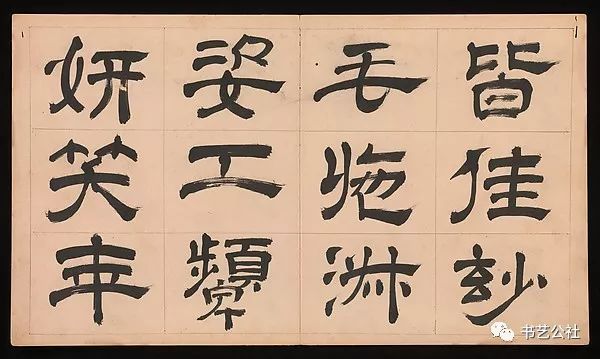 皆佳玅
毛施淑
姿工顰
妍笑年
书艺公社